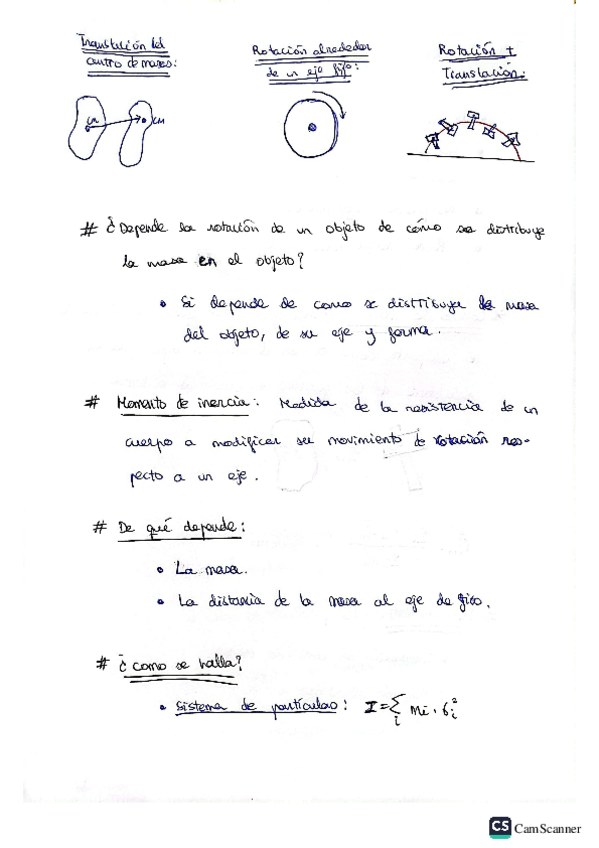 Translación del
centro de masas:
Rotación alrededor
de un eje fijo:
Rotación +
Translación:
CM
CM
# ¿Depende la rotación de un objeto de cómo se distribuye
la masa en el objeto?
• Si depende de como se distribuya la masa
del objeto, de su eje y forma.
# Momento de inercia: Medida de la resistencia de un
cuerpo a modificar su movimiento de rotación res-
pecto a un eje.
# De qué depende:
• La masa.
• La distancia de la masa al eje de giro.
# ¿como se halla?
• Sistema de partículas: I = Σ_i m_i · r_i²
CS CamScanner